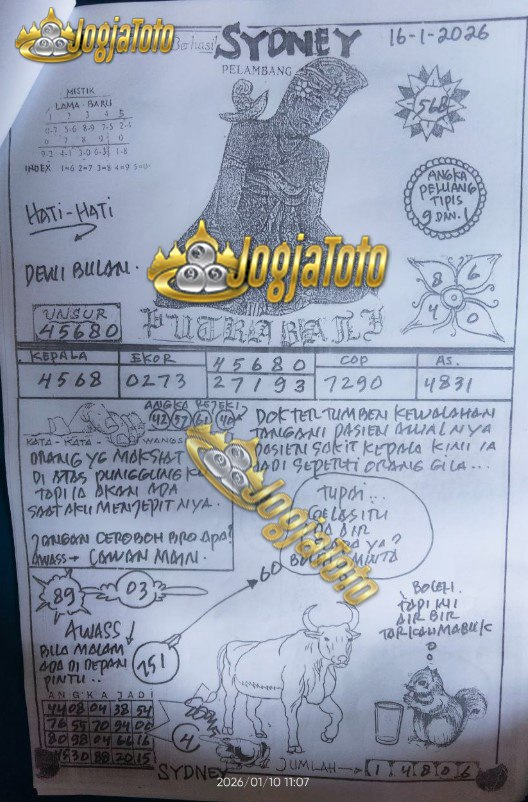 JogjaToto
Berhasil SYDNEY
16-1-2026
PELAMBANG
MISTIK
LAMA - BARU
1 2 3 4 5
0-7 5-6 8-9 7-5 2-4
6 7 8 9 0
9-2 4-1 3-0 6-3 1-8
INDEX 1=6 2=7 3=8 4=9 5=0
568
ANGKA
PELUANG
TIPIS
9 DAN 1
HATI-HATI
DEWI BULAN.
JogjaToto
8 6
4 0
UNSUR
45680
PUTRA BALI
KEPALA EKOR 45680 COP AS.
4568 0273 27193 7290 4831
ANGKA REJEKI
42 57 61 40
KATA - KATA - WANGS
ORANG YG MAKSIAT
DI ATAS PUNGGUNG K
TAPI IA AKAN ADA
SAAT AKU MENJEPITNYA.
JANGAN CEROBOH BRO APA?
AWASS → CAWAN MAIN.
DOKTER TUMBEN KEWALAHAN
TANGANI PASIEN AWALNYA
PASIEN SAKIT KEPALA KINI IA
JADI SEPERTI ORANG GILA...
JogjaToto
TUPAI...
GELAS ITU
AIR
YA?
MINTA
60
89
03
AWASS!
BILA MALAM
ADA DI DEPAN
PINTU..
151
BOLEH.
TAPI INI
AIR BIR
TAR KAU MABUK
ANGKA JADI
44 08 04 38 54
76 55 70 94 00
80 98 04 66 16
45 30 88 20 15
4
SYDNEY
JUMLAH → 1 4 8 0 6
2026/01/10 11:07